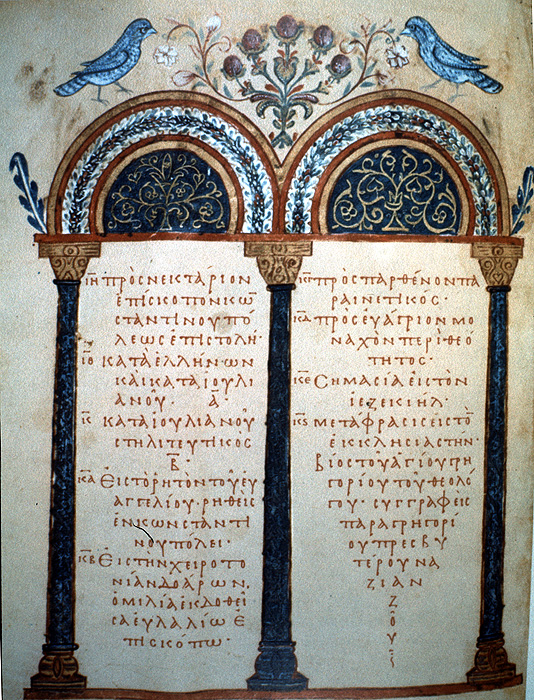 ΙΗ ΠΡΟΣ ΝΕΚΤΑΡΙΟΝ
ΕΠΙΣΚΟΠΟΝ ΚΩΝ
ΣΤΑΝΤΙΝΟΥΠΟ
ΛΕΩΣ ΕΠΙΣΤΟΛΗ·
ΙΘ ΚΑΤΑ ΕΛΛΗΝΩΝ
ΚΑΙ ΚΑΤΑ ΙΟΥΛΙ
ΑΝΟΥ· Α
Κ ΚΑΤΑ ΙΟΥΛΙΑΝΟΥ
ΣΤΗΛΙΤΕΥΤΙΚΟΣ
Β
ΚΑ ΕΙΣ ΤΟ ΡΗΤΟΝ ΤΟΥ ΕΥ
ΑΓΓΕΛΙΟΥ· ΡΗΘΕΙΣ
ΕΝ ΚΩΝΣΤΑΝΤΙ
ΝΟΥΠΟΛΕΙ·
ΚΒ ΕΙΣ ΤΗΝ ΧΕΙΡΟΤΟ
ΝΙΑΝ ΔΟΑΡΩΝ,
ΟΜΙΛΙΑ ΕΚΔΟΘΕΙ
ΣΑ ΕΥΛΑΛΙΩ Ε
ΠΙΣΚΟΠΩ·
ΚΓ ΠΡΟΣ ΠΑΡΘΕΝΟΝ ΠΑ
ΡΑΙΝΕΤΙΚΟΣ·
ΚΔ ΠΡΟΣ ΕΥΑΓΡΙΟΝ ΜΟ
ΝΑΧΟΝ ΠΕΡΙ ΘΕΟ
ΤΗΤΟΣ·
ΚΕ ΣΗΜΑΣΙΑ ΕΙΣ ΤΟΝ
ΙΕΖΕΚΙΗΛ·
ΚϚ ΜΕΤΑΦΡΑΣΙΣ ΕΙΣ ΤΟ
ΕΚΚΛΗΣΙΑΣΤΗΝ·
ΒΙΟΣ ΤΟΥ ΑΓΙΟΥ ΓΡΗ
ΓΟΡΙΟΥ ΤΟΥ ΘΕΟΛΟ
ΓΟΥ· ΣΥΓΓΡΑΦΕΙΣ
ΠΑΡΑ ΓΡΗΓΟΡΙ
ΟΥ ΠΡΕΣΒΥ
ΤΕΡΟΥ ΝΑ
ΖΙΑΝ
Ζ
Ο
Υ